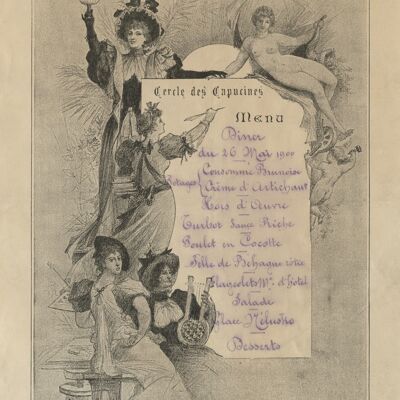 Cercle des Capucines
Menu
Dîner
du 26 Mai 1900
Potages
Consommé Brunoise
Crème d'Artichaut
Hors d'Œuvre
Turbot Sauce Riche
Poulet en Cocotte
Selle de Béhague rôtie
Flageolets Mtre d'hôtel
Salade
Glace Nélusko
Desserts